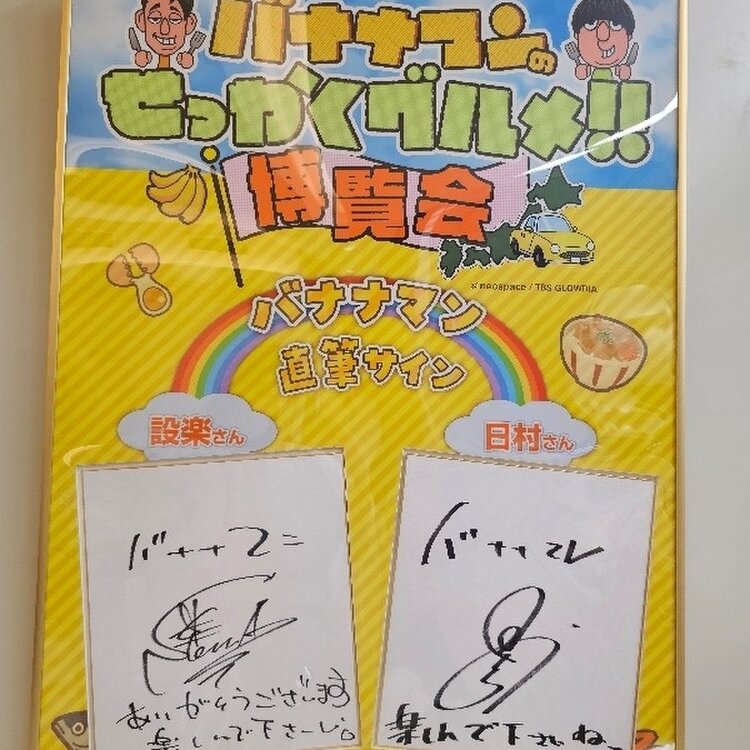 バナナマンの
せっかくグルメ!!
博覧会
©neospace / TBS GLOWDIA
バナナマン
直筆サイン
設楽さん
日村さん
バナナマン
ありがとうございます
楽しんで下さーい。
バナナマン
楽しんで下さいね